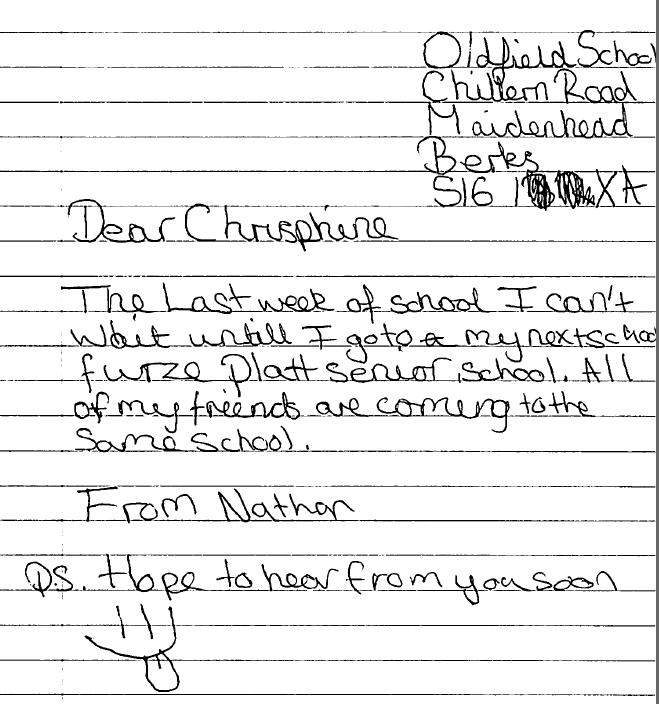 Oldfield School
Chiltern Road
Maidenhead
Berks
S16 1 XA
Dear Chrisphine
The Last week of school I can't
wait untill I go to my next school
furze Platt senior school. All
of my friends are coming to the
same school.
From Nathan
P.S. Hope to hear from you soon